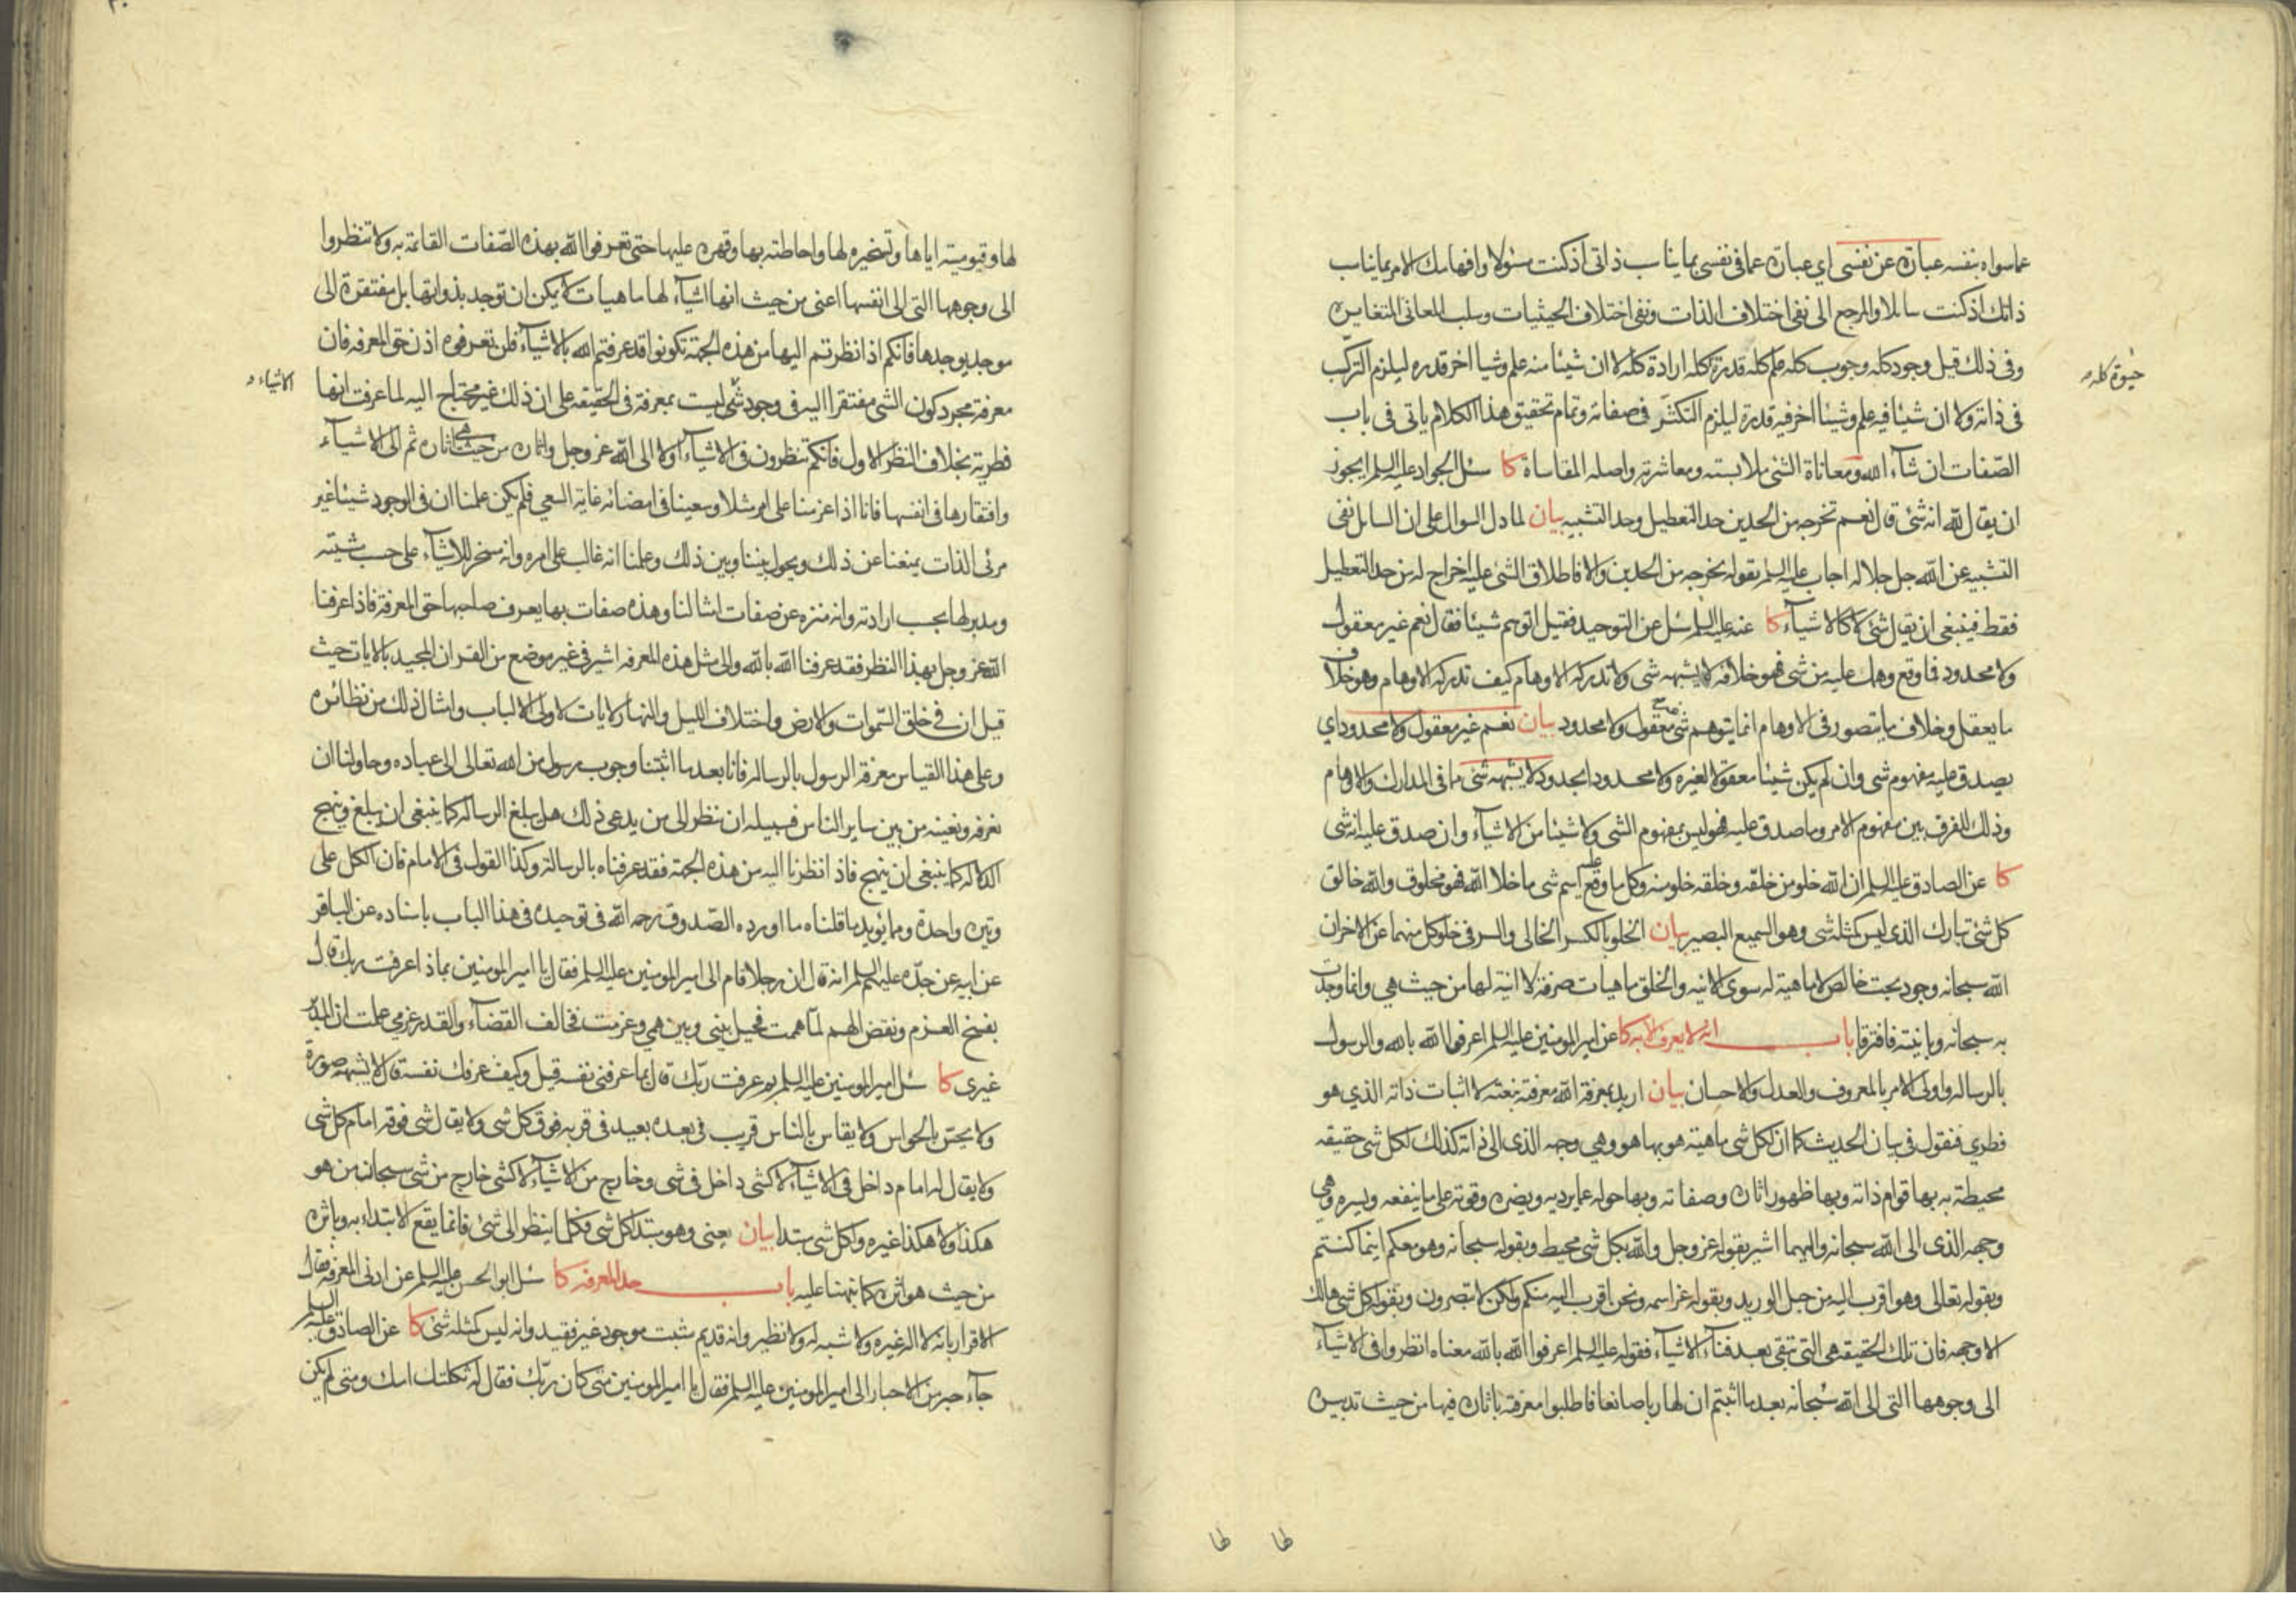 عما سواه بنفسه عبارة عن نفسي اي عبارة عما في نفسي بما يناسب ذاتي اذ كنت مسئولا وافهامك الامر بما يناسب
ذاتك اذ كنت سائلا والمرجع الى نفي اختلاف الذات ونفي اختلاف الحيثيات وسلب المعاني المتغايرة
وفي ذلك قيل وجود كله وجوب كله علم كله قدرة كله ارادة كله لا ان شيئا منه علم وشيا اخر قدره ليلزم التركب
حيوة كله
في ذاته ولا ان شيئا فيه علم وشيئا اخر فيه قدرة ليلزم التكثر في صفاته وتمام تحقيق هذا الكلام ياتي في باب
الصفات ان شاء الله ومعاناة الشئ ملابسته ومعاشرته واصله المقاساة كا سئل الجواد عليه السلم ايجوز
ان يقال لله انه شئ قال نعم تخرجه من الحدين حد التعطيل وحد التشبيه بيان لما دل السوال على ان السائل نفى
التشبيه عن الله جل جلاله اجاب عليه السلم بقوله تخرجه من الحدين والا فاطلاق الشئ عليه اخراج له من حد التعطيل
فقط فينبغي ان يقال شئ لا كالاشياء كا عنه عليه السلم سئل عن التوحيد فقيل اتوهم شيئا فقال نعم غير معقول
ولا محدود فما وقع وهمك عليه من شى فهو خلافه لا يشبهه شى ولا تدركه الاوهام كيف تدركه الاوهام وهو خلاف
ما يعقل وخلاف ما يتصور في الاوهام انما يتوهم شى غير معقول ولا محدود بيان نعم غير معقول ولا محدود اي
يصدق عليه مفهوم شى وان لم يكن شيئا معقولا لغيره ولا محدودا بحد ولا يشبهه شئ ما في المدارك والاوهام
وذلك للفرق بين مفهوم الامر وما صدق عليه فهو ليس بمفهوم الشى ولا شيئا من الاشياء وان صدق عليه انه شى
كا عن الصادق عليه السلم ان الله خلو من خلقه وخلقه خلو منه وكل ما وقع عليه اسم شى ما خلا الله فهو مخلوق والله خالق
كل شئ تبارك الذي ليس كمثله شى وهو السميع البصير بيان الخلو بالكسر الخالى والسر في خلو كل منهما عن الاخر ان
الله سبحانه وجود بحت خالص لا ماهية له سوى الانيه والخلق ماهيات صرفة لا انية لها من حيث هي وانما وجدت
به سبحانه وبانيته فافترقا باب انه لا يعرف الا به كا عن امير المومنين عليه السلم اعرفوا الله بالله والرسول
بالرساله واولى الامر بالمعروف والعدل والاحسان بيان اريد بمعرفة الله معرفته بنعته لا اثبات ذاته الذي هو
فطري فنقول في بيان الحديث كما ان لكل شى ماهية هو بها هو وهي وجهه الذى الى ذاته كذلك لكل شى حقيقه
محيطة به بها قوام ذاته وبها ظهور اثاره وصفاته وبها حوله عما يرديه ويضره وقوته على ما ينفعه ويسره وهي
وجهه الذى الى الله سبحانه واليهما اشير بقوله عز وجل والله بكل شى محيط وبقوله سبحانه وهو معكم اينما كنتم
وبقوله تعالى وهو اقرب اليه من حبل الوريد وبقوله عز اسمه ونحن اقرب اليه منكم ولكن لا تبصرون وبقوله كل شى هالك
الا وجهه فان تلك الحقيقه هي التي تبقى بعد فناء الاشياء فقوله عليه السلم اعرفوا الله بالله معناه انظروا في الاشياء
الى وجوهها التى الى الله سبحانه بعد ما اثبتم ان لها ربا صانعا فاطلبوا معرفته باثاره فيها من حيث تدبيره
لها وقيوميته اياها وتسخيره لها واحاطته بها وقهره عليها حتى تعرفوا الله بهذه الصفات القائمة به ولا تنظروا
الى وجوهها التى الى انفسها اعنى من حيث انها اشياء لها ماهيات لا يمكن ان توجد بذواتها بل مفتقرة الى
موجد يوجدها فانكم اذا نظرتم اليها من هذه الجهة تكونوا قد عرفتم الله بالاشياء فلن تعرفوه اذن حق المعرفه فان
معرفة مجرد كون الشى مفتقرا اليه في وجود شى ليست بمعرفة في الحقيقه على ان ذلك غير محتاج اليه لما عرفت انها
الاشياء
فطرية بخلاف النظر الاول فانكم تنظرون في الاشياء اولا الى الله عز وجل واثاره من حيث هي اثاره ثم الى الاشياء
وافتقارها في انفسها فانا اذا عزمنا على امر مثلا وسعينا في امضائه غاية السعي فلم يكن علمنا ان في الوجود شيئا غير
مرئى الذات يمنعنا عن ذلك ويحول بيننا وبين ذلك وعلمنا انه غالب على امره وانه مسخر للاشياء على حسب مشيته
ومدبر لها بحسب ارادته وانه منزه عن صفات امثالنا وهذه صفات بها يعرف صاحبها حق المعرفة فاذا عرفنا
الله عز وجل بهذا النظر فقد عرفنا الله بالله والى مثل هذه المعرفه اشير في غير موضع من القران المجيد بالايات حيث
قيل ان في خلق السموات والارض واختلاف الليل والنهار لايات لاولى الالباب وامثال ذلك من نظائره
وعلى هذا القياس معرفة الرسول بالرساله فانا بعد ما اثبتنا وجوب رسول من الله تعالى الى عباده وحاولنا ان
نعرفه ونعينه من بين ساير الناس فسبيله ان ننظر الى من يدعى ذلك هل يبلغ الرساله كما ينبغى ان يبلغ وينهج
الدلاله كما ينبغى ان ينهج فاذا نظرنا اليه من هذه الجهة فقد عرفناه بالرسالة وكذا القول في الامام فان الكل على
وتيره واحدة ومما يؤيد ما قلناه ما اورده الصدوق رحمه الله في توحيده في هذا الباب باسناده عن الباقر
عن ابيه عن جده عليهم السلم انه قال ان رجلا قام الى امير المومنين عليه السلم فقال يا امير المومنين بماذا عرفت ربك قال
بفسخ العزم ونقض الهمم لما هممت فحيل بيني وبين همي وعزمت فخالف القضاء والقدر عزمي علمت ان المدبر
غيرى كا سئل امير المومنين عليه السلم بم عرفت ربك قال بما عرفني نفسه قيل وكيف عرفك نفسه قال لا يشبهه صورة
ولا يحس بالحواس ولا يقاس بالناس قريب في بعده بعيد في قربه فوق كل شى ولا يقال شى فوقه امام كل شى
ولا يقال له امام داخل في الاشياء لا كشى داخل في شى وخارج من الاشياء لا كشى خارج من شى سبحان من هو
هكذا ولا هكذا غيره ولكل شى مبتدا بيان يعنى وهو مبتدا كل شى فكلما ينظر الى شئ فانما يقع الابتداء به وباثره
من حيث هو اثره كما نبهنا عليه باب حد المعرفه كا سئل ابو الحسن عليه السلم عن ادنى المعرفة فقال
الاقرار بانه لا اله غيره ولا شبه له ولا نظير وانه قديم مثبت موجود غير فقيد وانه ليس كمثله شئ كا عن الصادق عليه السلم
جاء حبر من الاحبار الى امير المومنين عليه السلم فقال يا امير المومنين متى كان ربك فقال له ثكلتك امك ومتى لم يكن
لها لها